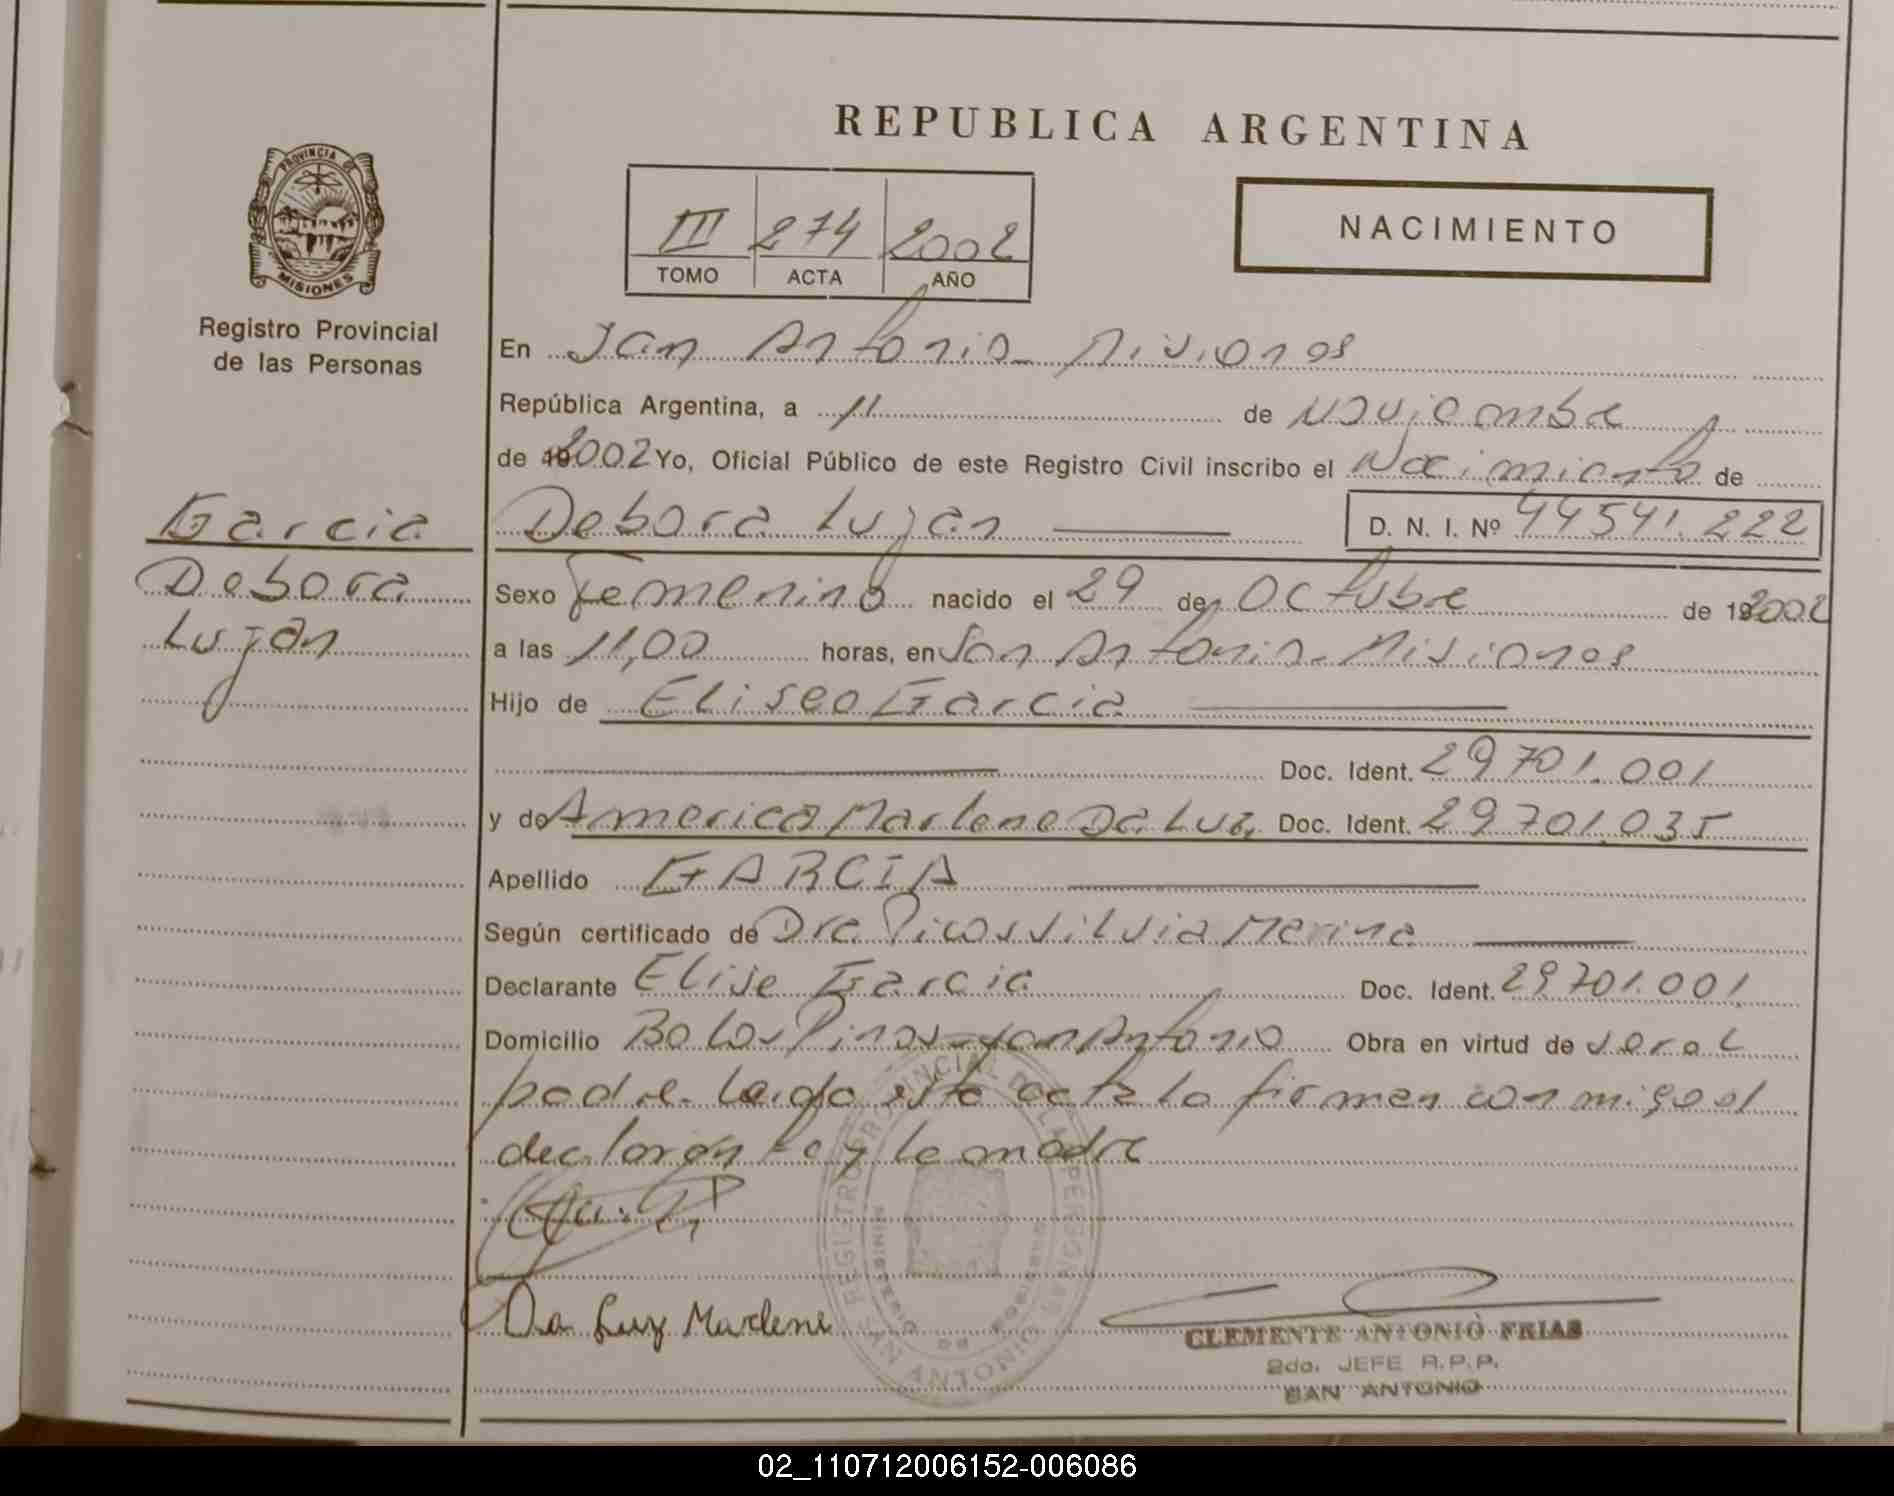 REPUBLICA ARGENTINA
PROVINCIA DE
MISIONES
Registro Provincial
de las Personas
III 274 2002
TOMO ACTA AÑO
NACIMIENTO
En San Antonio Misiones
República Argentina, a 11 de Noviembre
de 192002 Yo, Oficial Público de este Registro Civil inscribo el Nacimiento de
Garcia
Debora Lujan
Debora Lujan D. N. I. Nº 44541.222
Sexo Femenino nacido el 29 de Octubre de 192002
a las 11,00 horas, en San Antonio - Misiones
Hijo de Eliseo Garcia
Doc. Ident. 29701.001
y de America Marlene Da Luz Doc. Ident. 29701.035
Apellido GARCIA
Según certificado de Dra Picos Silvia Marina
Declarante Elise Garcia Doc. Ident. 29701.001
Domicilio Bo Los Pinos - San Antonio Obra en virtud de ser el
padre. Leida esta acta la firman conmigo el
declarante y la madre
REGISTRO PROVINCIAL DE LAS PERSONAS
MINISTERIO DE GOBIERNO
SAN ANTONIO
Da Luz Marlene
CLEMENTE ANTONIO FRIAS
2do. JEFE R.P.P.
SAN ANTONIO
02_110712006152-006086